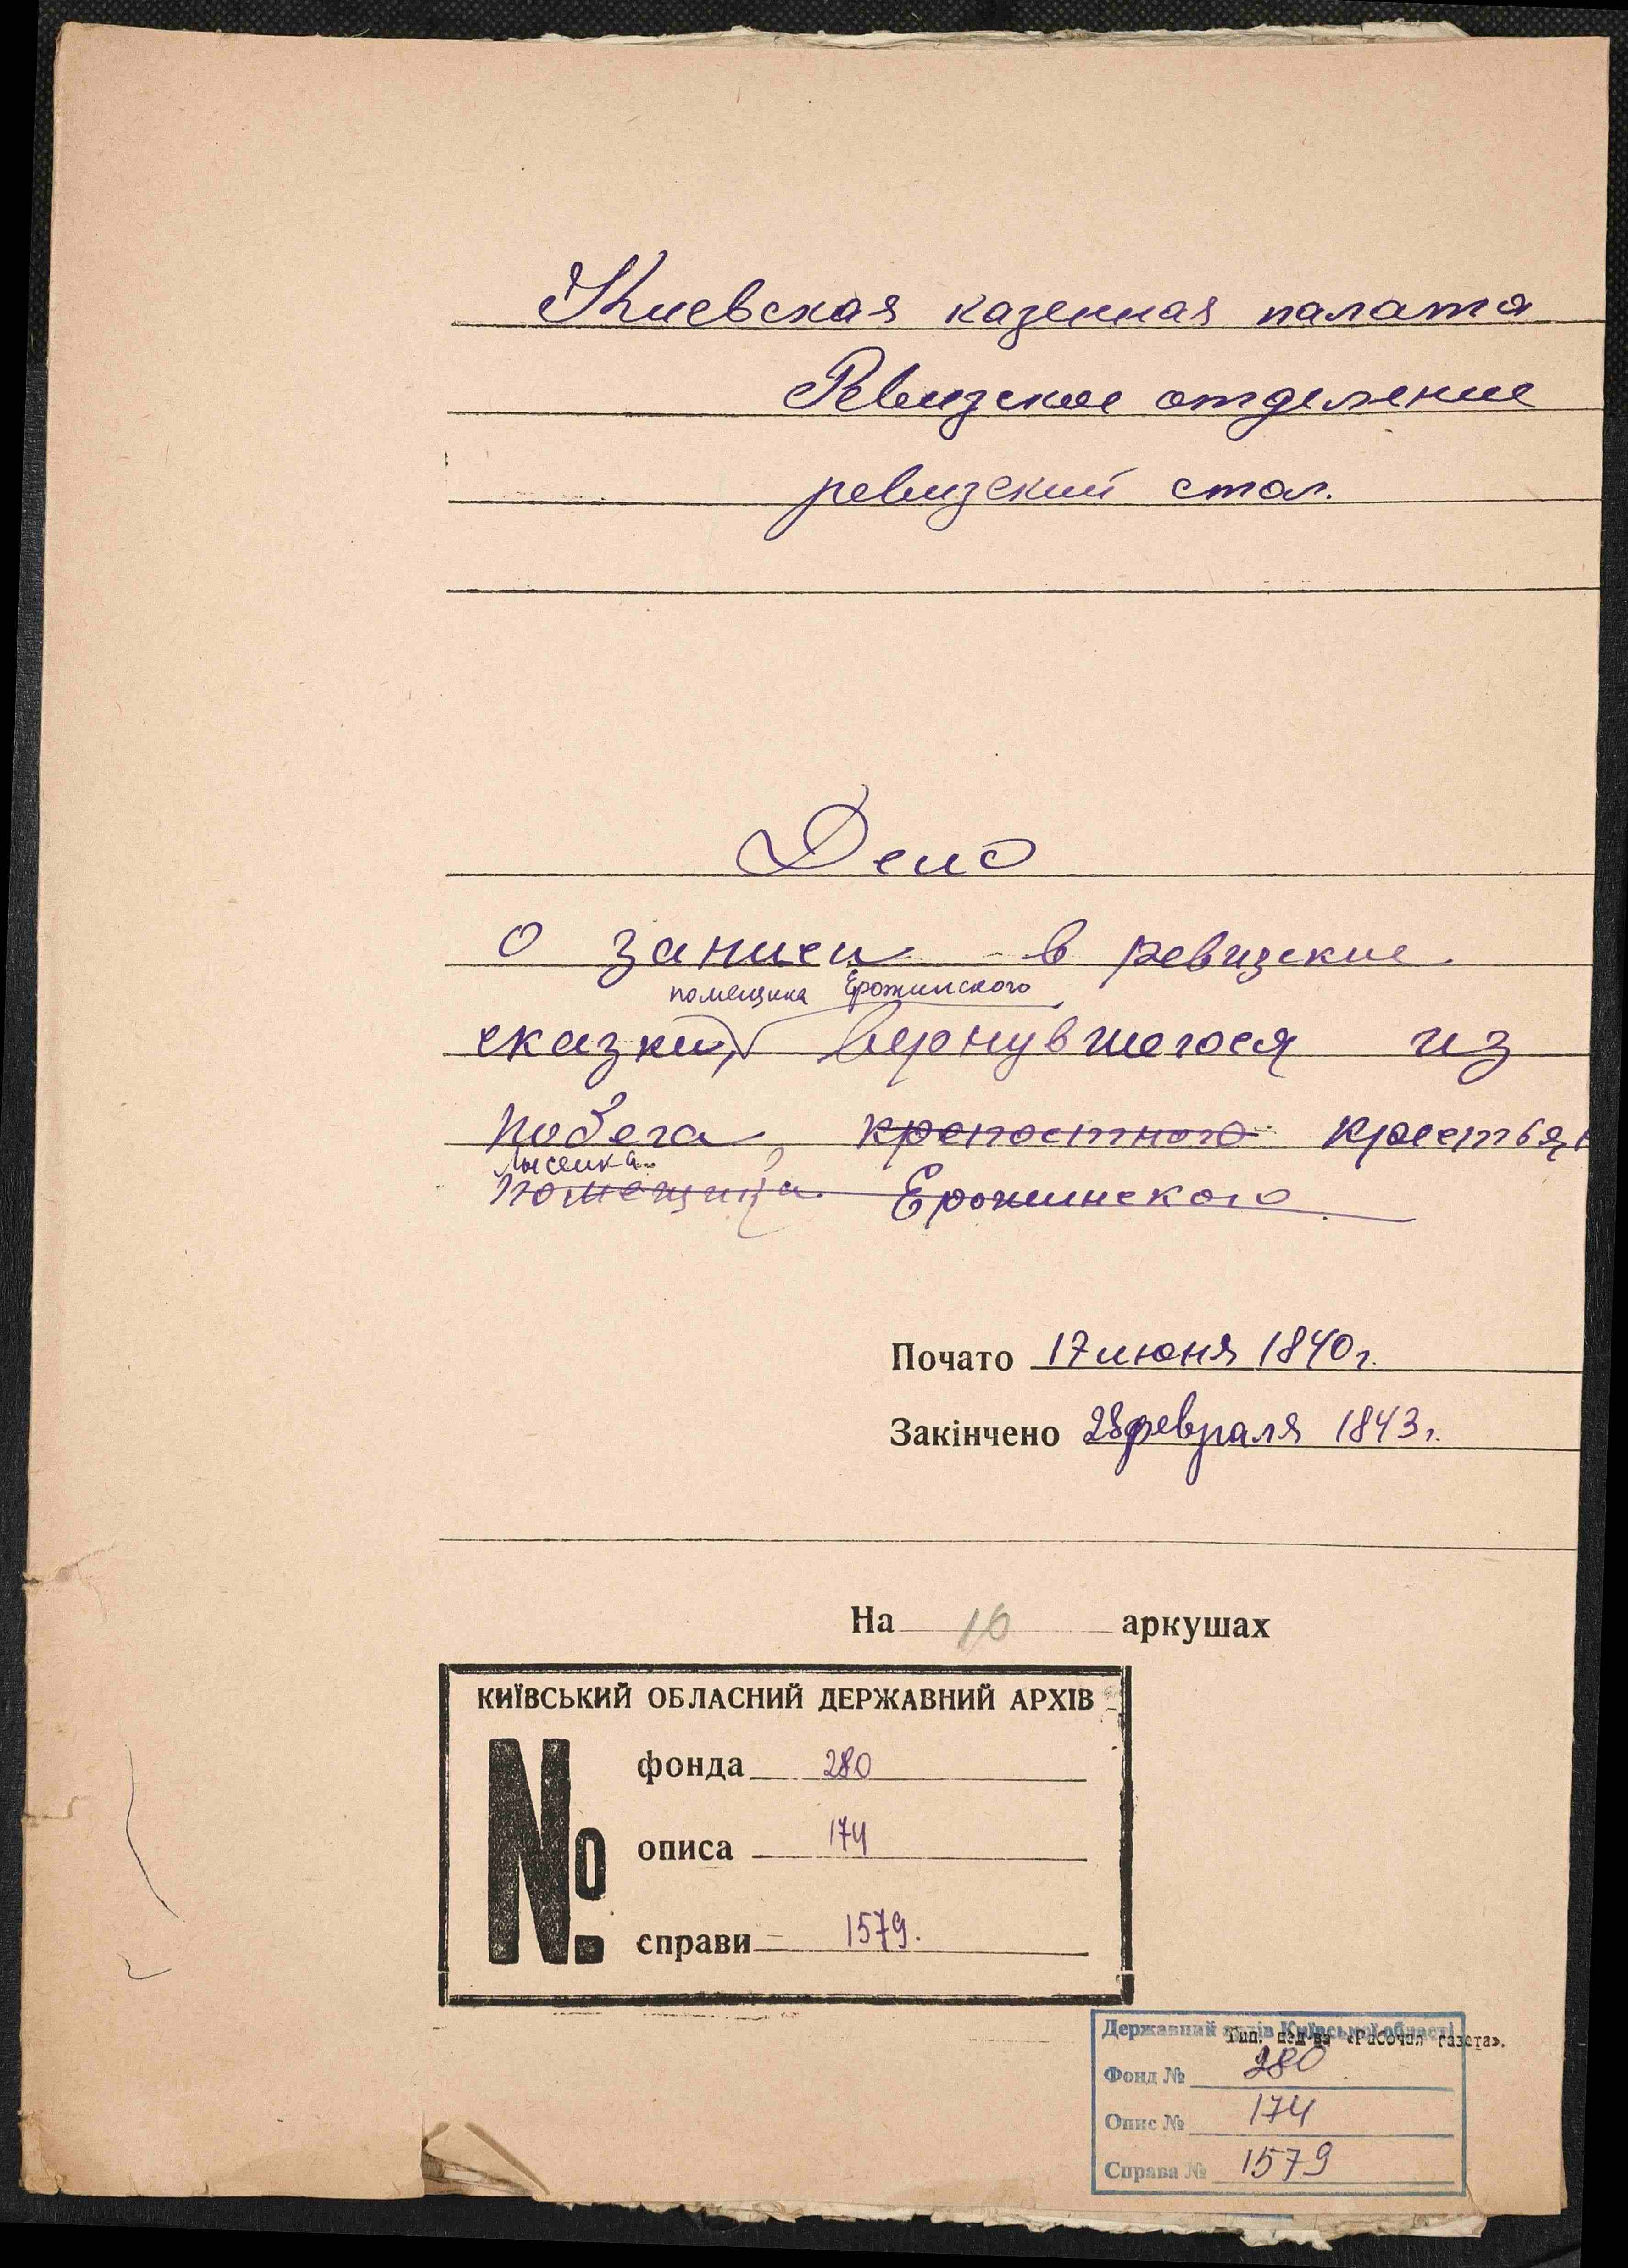 Киевская казенная палата
Ревизское отделение
ревизский стол.
Дело
о записи в ревизские
помещика Ерожинского
сказки, вернувшегося из
побега, крепостного крестьян
Лысенка
помещика Ерожинского
Почато 17 июня 1840 г.
Закінчено 28 февраля 1843 г.
На 10 аркушах
КИЇВСЬКИЙ ОБЛАСНИЙ ДЕРЖАВНИЙ АРХІВ
№
фонда 280
описа 174
справи 1579.
Державний архів Київської області
Тип. изд-ва «Рабочая газета».
Фонд № 280
Опис № 174
Справа № 1579